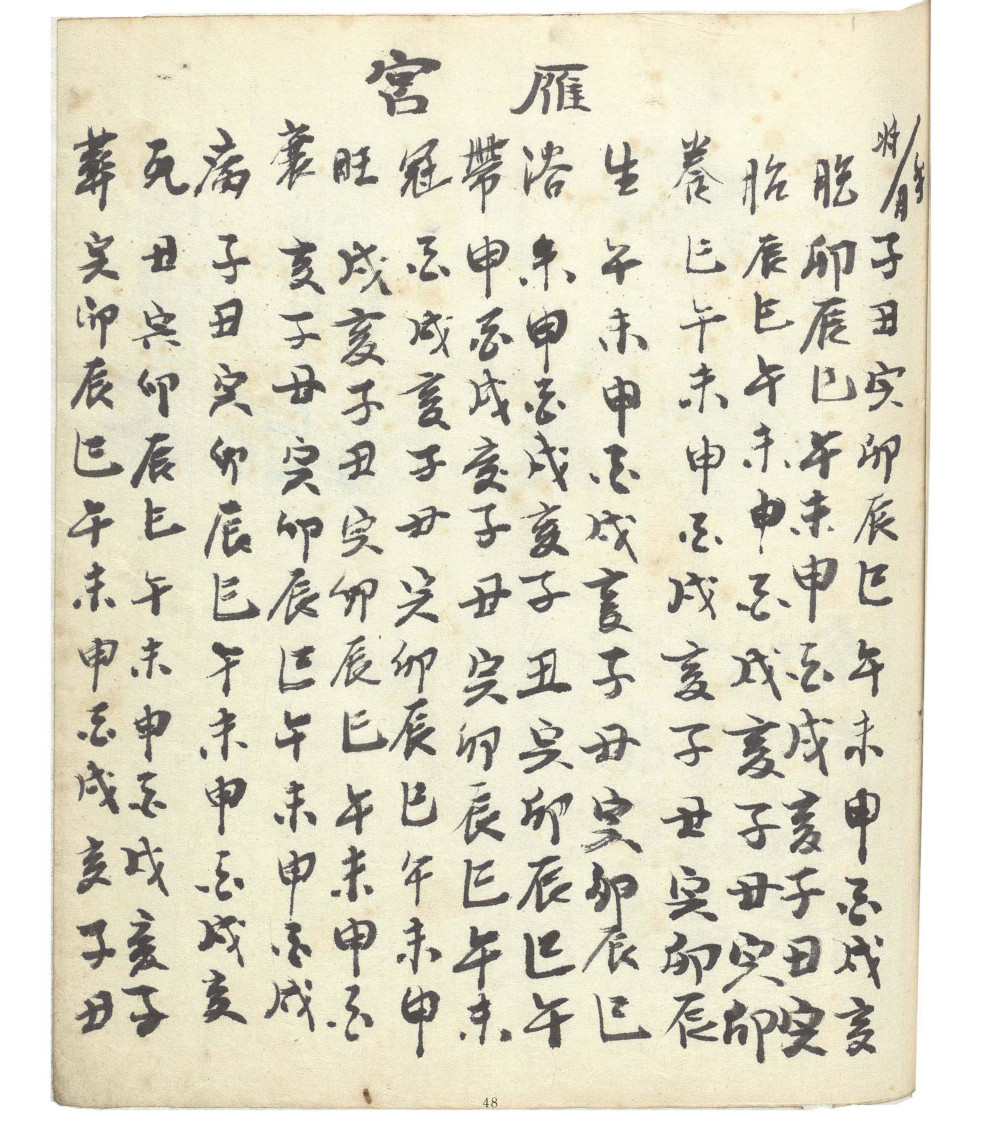 雁宮
年月 子丑寅卯辰巳午未申酉戌亥
胞 卯辰巳午未申酉戌亥子丑寅
胎 辰巳午未申酉戌亥子丑寅卯
養 巳午未申酉戌亥子丑寅卯辰
生 午未申酉戌亥子丑寅卯辰巳
浴 未申酉戌亥子丑寅卯辰巳午
帶 申酉戌亥子丑寅卯辰巳午未
冠 酉戌亥子丑寅卯辰巳午未申
旺 戌亥子丑寅卯辰巳午未申酉
衰 亥子丑寅卯辰巳午未申酉戌
病 子丑寅卯辰巳午未申酉戌亥
死 丑寅卯辰巳午未申酉戌亥子
葬 寅卯辰巳午未申酉戌亥子丑
48